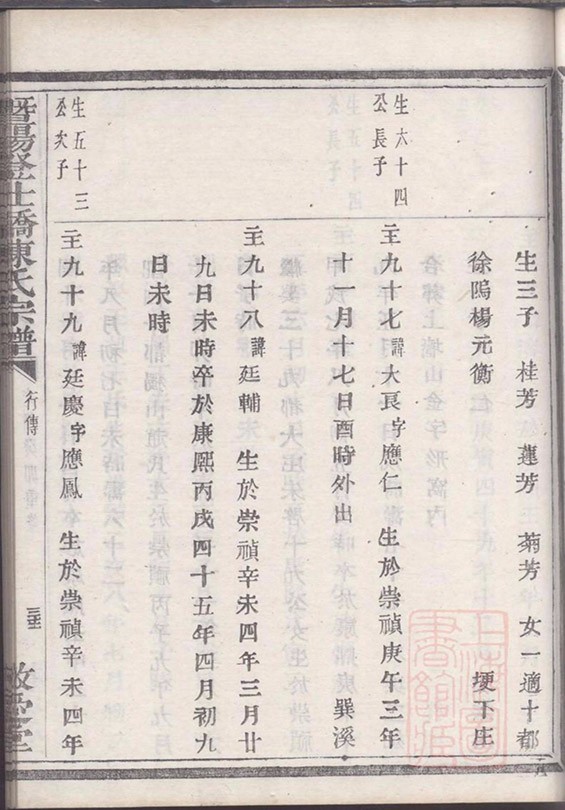 生三子 桂芳 蓮芳 菊芳 女一適十都
徐塢楊元衡 埂下庄
生六十四
公長子
主九十七諱大良字應仁 生於崇禎庚午三年
十一月十七日酉時外出 巽溪
主九十八諱廷輔 生於崇禎辛未四年三月廿
九日未時卒於康熙丙戌四十五年四月初九
日未時
生五十三
公次子
主九十九諱廷慶字應鳳 生於崇禎辛未四年
暨陽登仕橋陳氏宗譜
行傳
上海圖書館藏